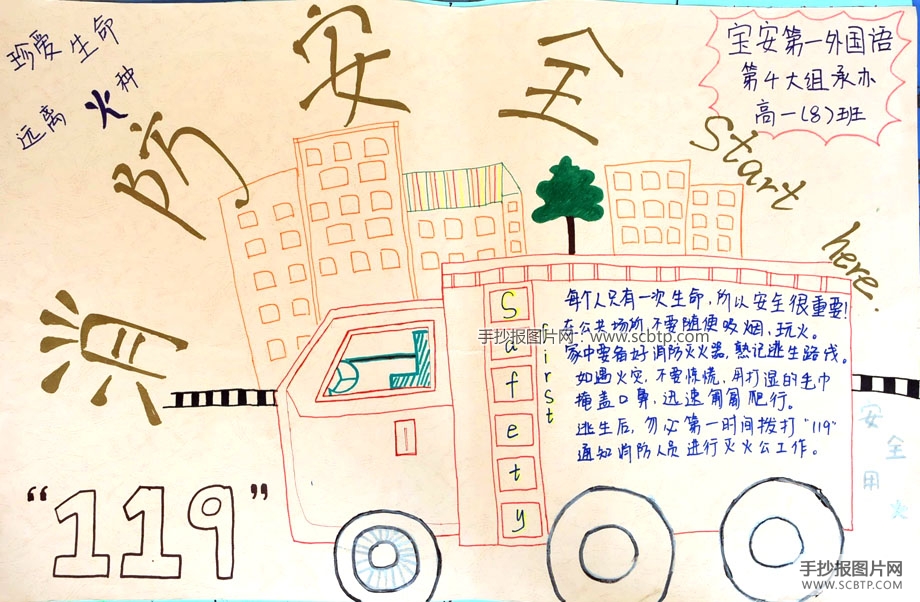 珍爱生命
远离火种
消防安全
宝安第一外国语
第4大组承办
高一(8)班
Start here.
Safety
first
每个人只有一次生命，所以安全很重要!
在公共场所，不要随便吸烟、玩火。
家中要备好消防灭火器，熟记逃生路线。
如遇火灾，不要惊慌，用打湿的毛巾
掩盖口鼻，迅速匍匐爬行。
逃生后，务必第一时间拨打"119"
通知消防人员进行灭火公工作。
手抄报图片网：www.scbtp.com
安全用火
"119"
手抄报图片网
WWW.SCBTP.COM